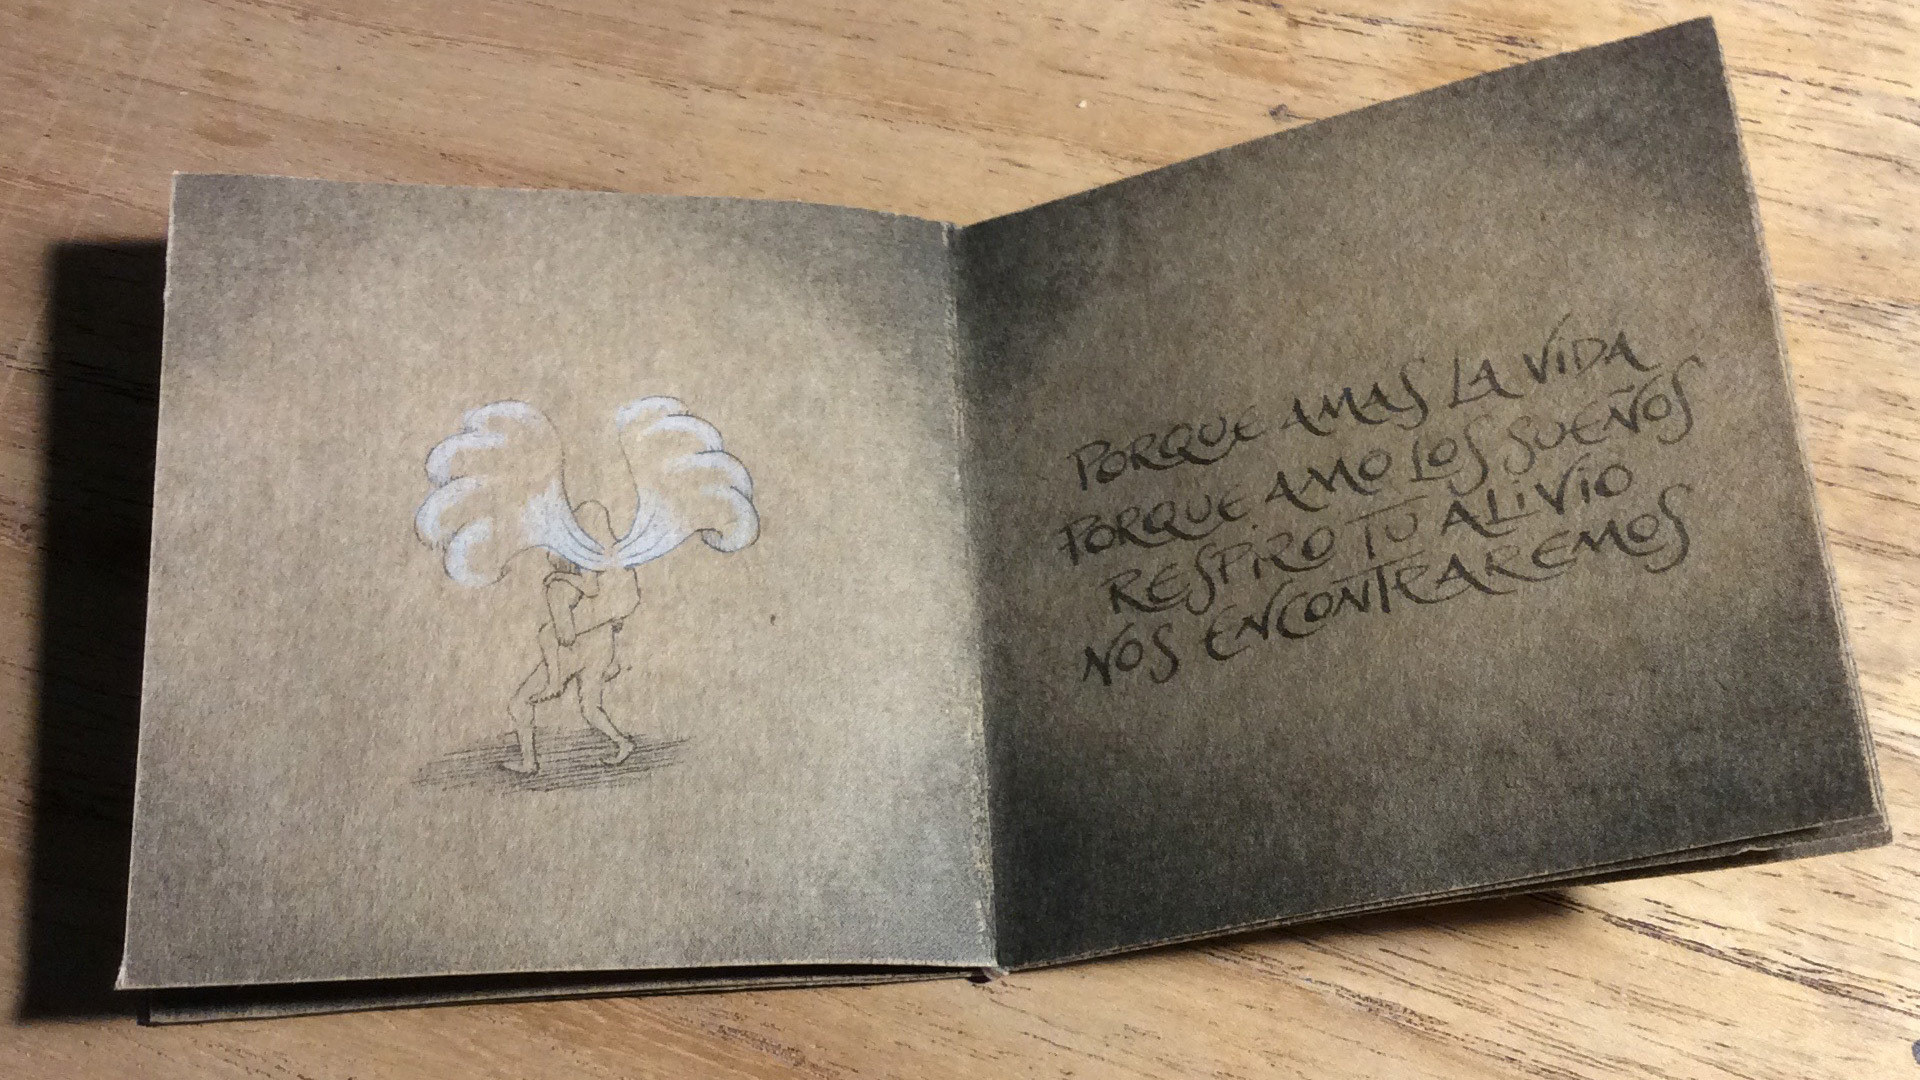 PORQUE AMAS LA VIDA
PORQUE AMO LOS SUEÑOS
RESPIRO TU ALIVIO
NOS ENCONTRAREMOS